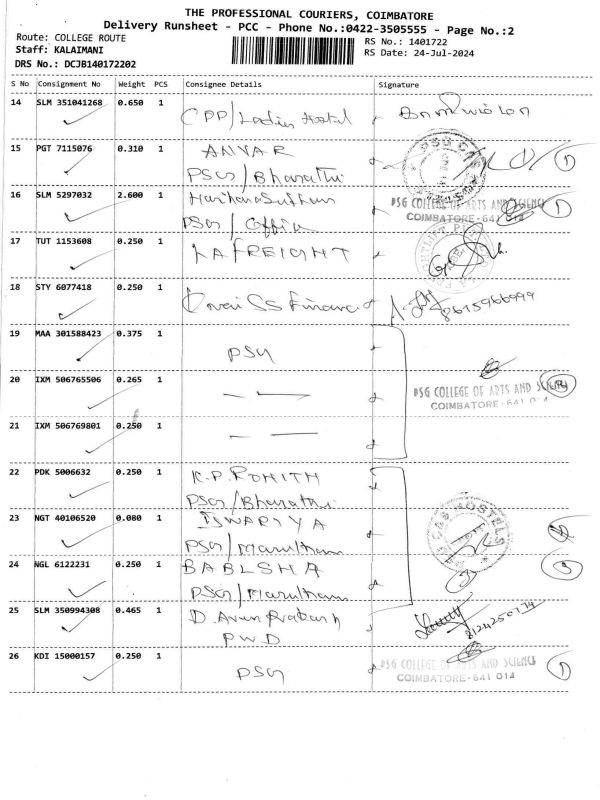 THE PROFESSIONAL COURIERS, COIMBATORE
Delivery Runsheet - PCC - Phone No.:0422-3505555 - Page No.:2
Route: COLLEGE ROUTE
Staff: KALAIMANI
DRS No.: DCJB140172202
RS No.: 1401722
RS Date: 24-Jul-2024
S No Consignment No Weight PCS Consignee Details Signature
14 SLM 351041268 0.650 1 CPP/Ladies Hostel
15 PGT 7115076 0.310 1 ANVAR
PSG/Bharathi
16 SLM 5297032 2.600 1
PSG/Office
PSG COLLEGE OF ARTS AND SCIENCE
COIMBATORE-641 014
17 TUT 1153608 0.250 1 LA FREIGHT
18 STY 6077418 0.250 1
19 MAA 301588423 0.375 1 PSG
20 IXM 506765506 0.265 1
PSG COLLEGE OF ARTS AND SCIENCE
COIMBATORE-641 014
21 IXM 506769801 0.250 1
22 PDK 5006632 0.250 1 K.P. ROHITH
PSG/Bharathi
23 NGT 40106520 0.080 1 ISWARIYA
PSG/Marutham
24 NGL 6122231 0.250 1
PSG/Marutham
25 SLM 350994308 0.465 1 D. Arun Prakash
PWD
26 KDI 15000157 0.250 1 PSG
PSG COLLEGE OF ARTS AND SCIENCE
COIMBATORE-641 014